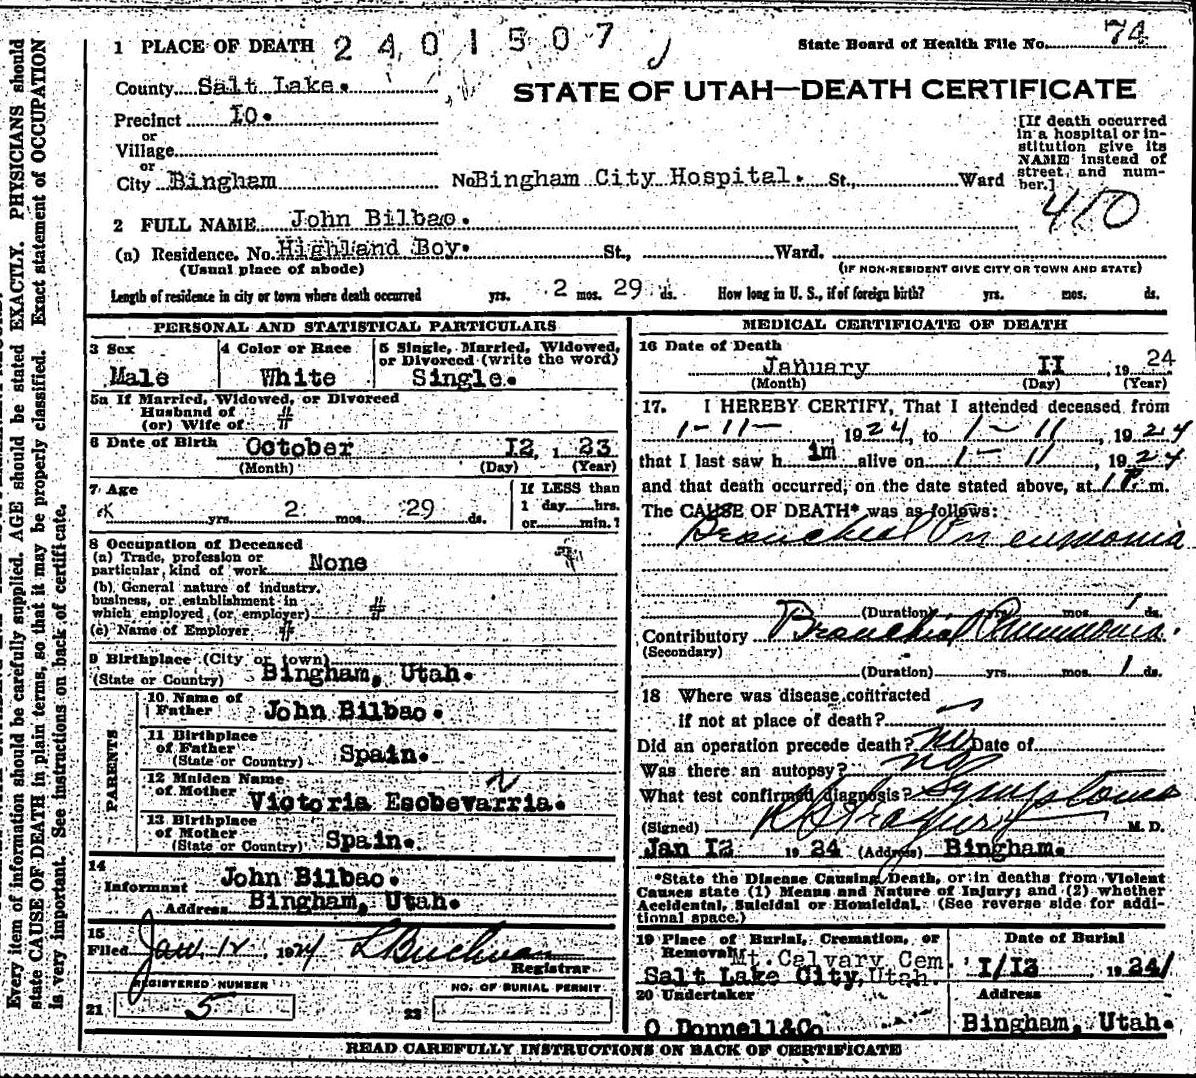 1 PLACE OF DEATH 2401507
State Board of Health File No. 74
County Salt Lake.
STATE OF UTAH—DEATH CERTIFICATE
Precinct 10.
or
Village
or
City Bingham No Bingham City Hospital. St., Ward
[If death occurred in a hospital or in-
stitution give its
NAME instead of
street, and num-
ber.]
410
2 FULL NAME John Bilbao.
(a) Residence. No. Highland Boy. St., Ward.
(Usual place of abode) (IF NON-RESIDENT GIVE CITY OR TOWN AND STATE)
Length of residence in city or town where death occurred yrs. 2 mos. 29 ds. How long in U. S., if of foreign birth? yrs. mos. ds.
PERSONAL AND STATISTICAL PARTICULARS
3 Sex
Male
4 Color or Race
White
5 Single, Married, Widowed,
or Divorced (write the word)
Single.
5a If Married, Widowed, or Divorced
Husband of #
(or) Wife of #
6 Date of Birth October 12, 1 23
(Month) (Day) (Year)
7 Age
yrs. 2 mos. 29 ds.
If LESS than
1 day hrs.
or min.?
8 Occupation of Deceased
(a) Trade, profession or
particular, kind of work None
(b) General nature of industry,
business, or establishment in
which employed (or employer) #
(c) Name of Employer #
9 Birthplace (City or town)
(State or Country) Bingham, Utah.
PARENTS
10 Name of
Father John Bilbao.
11 Birthplace
of Father
(State or Country) Spain.
12 Maiden Name
of Mother Victoria Esobevarria.
13 Birthplace
of Mother
(State or Country) Spain.
14
Informant John Bilbao.
Address Bingham, Utah.
15
Filed Jan. 12, 1924 L Buchman
Registrar
REGISTERED NUMBER
21 5
NO. OF BURIAL PERMIT
22
MEDICAL CERTIFICATE OF DEATH
16 Date of Death
January 11 1924
(Month) (Day) (Year)
17. I HEREBY CERTIFY, That I attended deceased from
1-11- 1924, to 1-11, 1924
that I last saw h im alive on 1-11, 1924
and that death occurred, on the date stated above, at 1 P. m.
The CAUSE OF DEATH* was as follows:
Bronchial Pneumonia
(Duration) yrs. mos. 1 ds.
Contributory Bronchial Pneumonia.
(Secondary)
(Duration) yrs. mos. 1 ds.
18 Where was disease contracted
if not at place of death?
Did an operation precede death? no Date of
Was there an autopsy? no
What test confirmed diagnosis? Symptoms
(Signed) M. D.
Jan 12 1924 (Address) Bingham.
*State the Disease Causing Death, or in deaths from Violent
Causes state (1) Means and Nature of Injury; and (2) whether
Accidental, Suicidal or Homicidal. (See reverse side for addi-
tional space.)
19 Place of Burial, Cremation, or
Removal Mt. Calvary Cem.
Salt Lake City, Utah.
Date of Burial
1/13 1924
20 Undertaker
O Donnell & Co
Address
Bingham, Utah.
READ CAREFULLY INSTRUCTIONS ON BACK OF CERTIFICATE
Every item of information should be carefully supplied. AGE should be stated EXACTLY. PHYSICIANS should
state CAUSE OF DEATH in plain terms, so that it may be properly classified. Exact statement of OCCUPATION
is very important. See instructions on back of certificate.